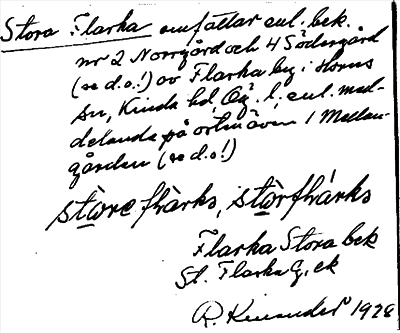 Stora Flarka omfattar enl. bek.
nr 2 Norrgård och 4 Södergård
(se d.o.!) av Flarka by i Horns
sn, Kinda hd, Ög. l; enl. med-
delande på orten även 1 Mellan-
gården (se d.o!)
store flarks, i storflarks
Flarka Stora bek
St. Flarka G. ek
R. Kinander 1928